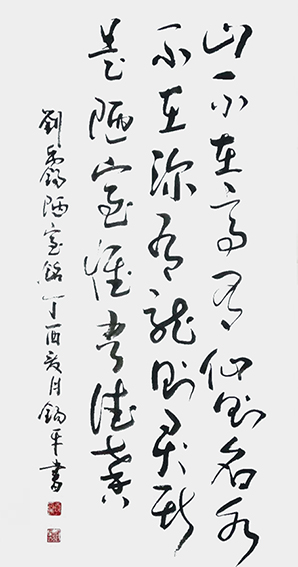 山不在高有仙則名水
不在深有龍則灵斯
是陋室惟吾德馨
劉禹錫陋室銘丁酉夏月錫平書